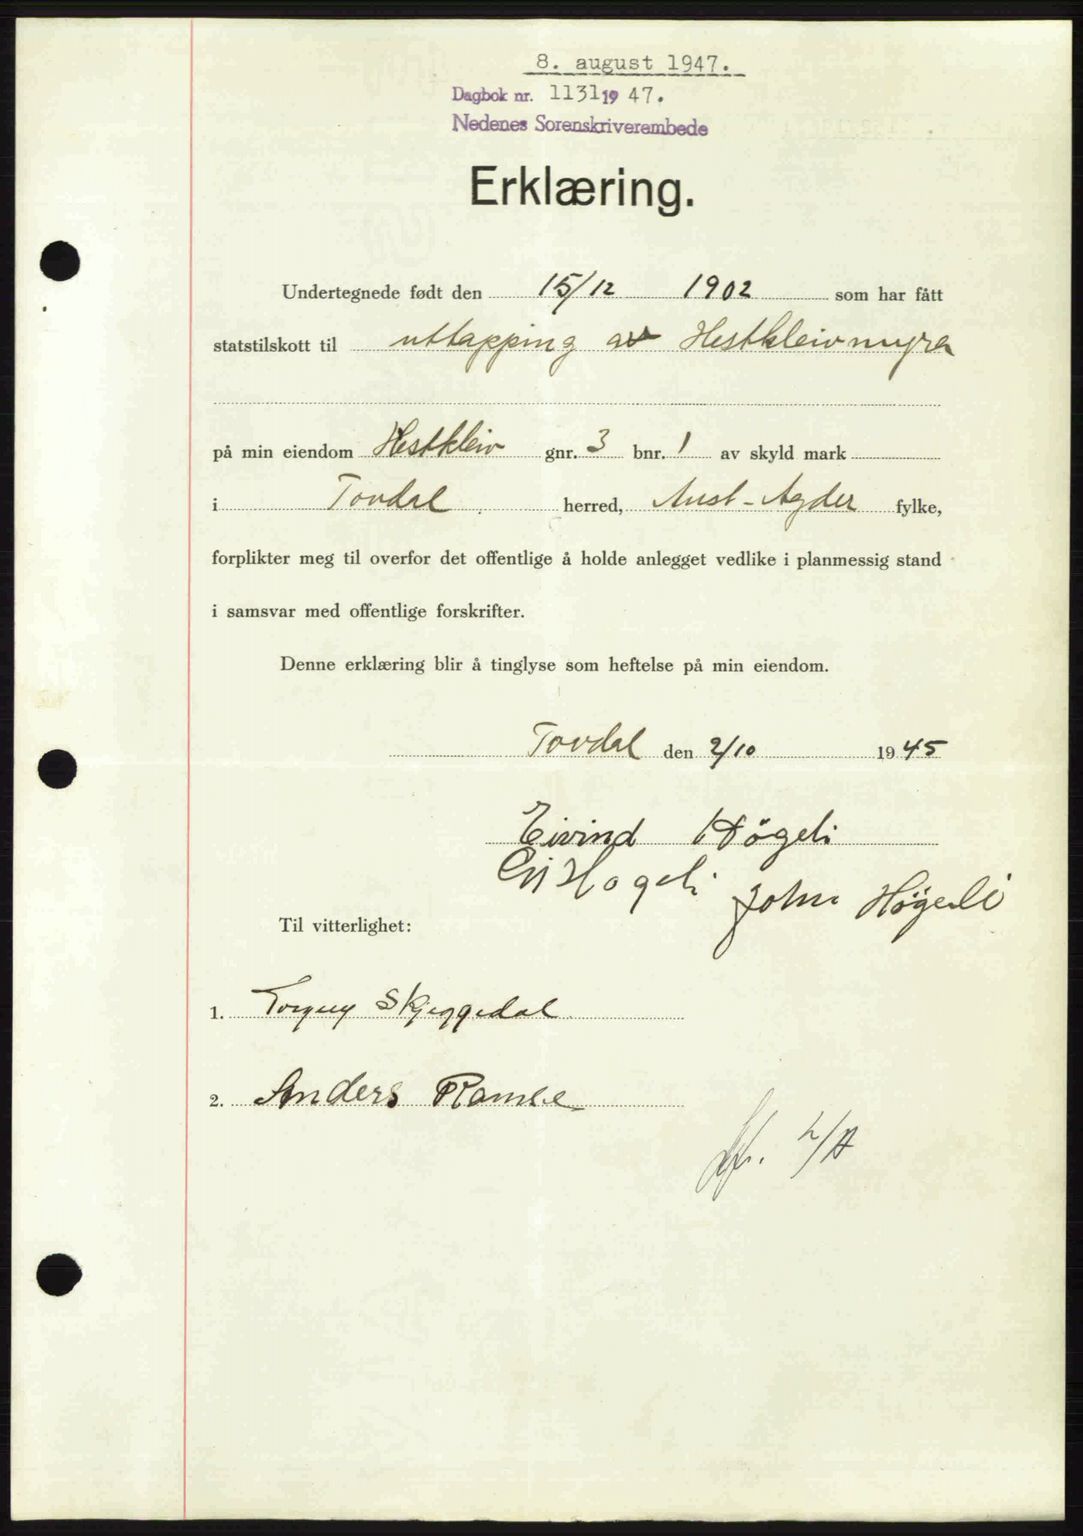 8. august 1947.
Dagbok nr. 1131 19 47.
Nedenes Sorenskriverembede
Erklæring.
Undertegnede født den 15/12 1902 som har fått
statstilskott til uttapping av Hestkleivmyra
på min eiendom Hestkleiv gnr. 3 bnr. 1 av skyld mark
i Tovdal herred, Aust-Agder fylke,
forplikter meg til overfor det offentlige å holde anlegget vedlike i planmessig stand
i samsvar med offentlige forskrifter.
Denne erklæring blir å tinglyse som heftelse på min eiendom.
Tovdal den 2/10 1945
Eivind Högeli
Högeli John Högeli
Til vitterlighet:
1. Skjeggedal
2. Anders Ramse